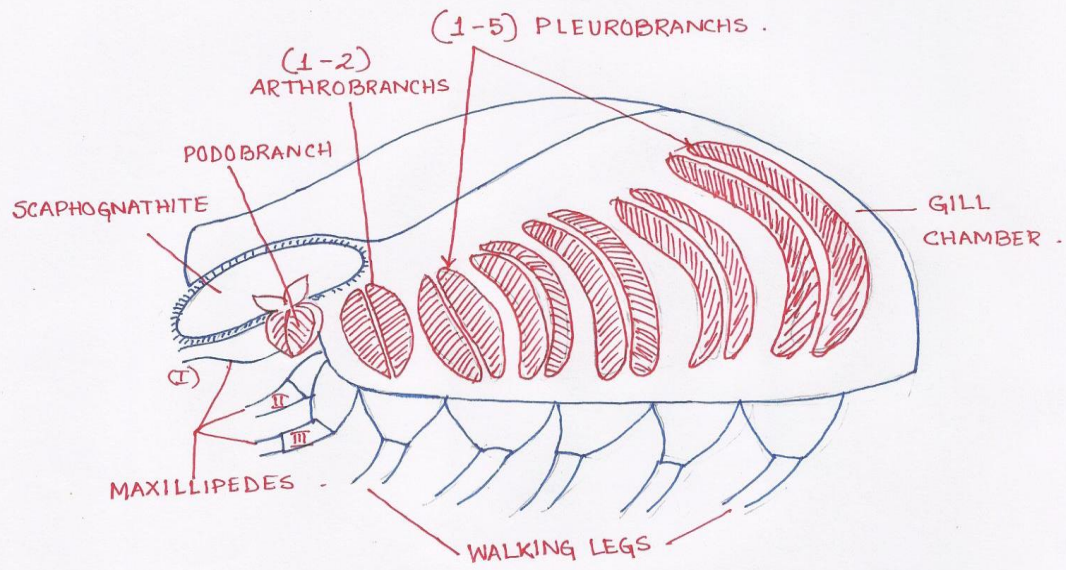 (1-5) PLEUROBRANCHS .
(1-2)
ARTHROBRANCHS
PODOBRANCH
SCAPHOGNATHITE
GILL
CHAMBER .
(I)
II
III
MAXILLIPEDES .
WALKING LEGS